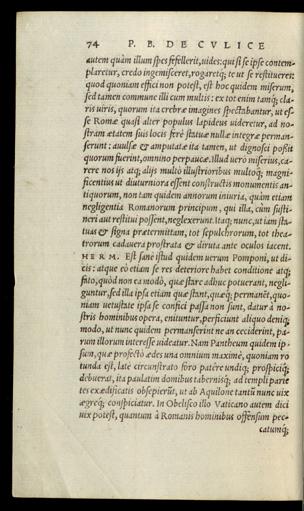 74 P. B. DE CVLICE
autem quàm illum spes fefellerit, uides: qui si se ipse contem-
plaretur, credo ingemisceret, rogaretq; te ut se restitueres:
quod quoniam effici non potest, est hoc quidem miserum,
sed tamen commune illi cum multis: ex tot enim tamq; cla-
ris uiris, quorum ita crebræ imagines spectabantur, ut es-
se Romæ quasi alter populus lapideus uideretur, ad no-
stram ætatem suis locis ferè statuæ nullæ integræ perman-
serunt: auulsæ & amputatæ ita tamen, ut dignosci possit
quorum fuerint, omnino perpaucæ. Illud uerò miserius, ca-
rere nos ijs atq; alijs multò illustrioribus multoq; magni-
ficentius ut diuturniora essent constructis monumentis an-
tiquorum, non tam quidem annorum iniuria, quàm etiam
negligentia Romanorum principum, qui illa, cùm susti-
neri aut restitui possent, neglexerunt. Itaq; nunc, ut iam sta-
tuas & signa prætermittam, tot sepulchrorum, tot thea-
trorum cadauera prostrata & diruta ante oculos iacent.
HERM. Est sanè istud quidem uerum Pomponi, ut di-
cis: atque eò etiam se res deteriore habet conditione atq;
fato, quòd non ea modò, quæ stare adhuc potuerant, negli-
guntur, sed illa ipsa etiam quæ stant, quæq; permanēt, quo-
niam uetustate ipsa se confici passa non sunt, datur à no-
stris hominibus opera, enituntur, perficiunt aliquo deniq;
modo, ut nunc quidem permanserint ne an ceciderint, pa-
rum illorum interesse uideatur. Nam Pantheum quidem ip-
sum, quæ profectò ædes una omnium maximè, quoniam ro
tunda est, latè circunstrato foro patēre undiq; prospiciq;
debuerat, ita paulatim domibus tabernisq; ad templi parie
tes exædificatis obsepierūt, ut ab Aquilone tantū nunc uix
ægreq; conspiciatur. In Obelisco illo Vaticano autem dici
uix potest, quantum à Romanis hominibus offensum pec-
catumq;